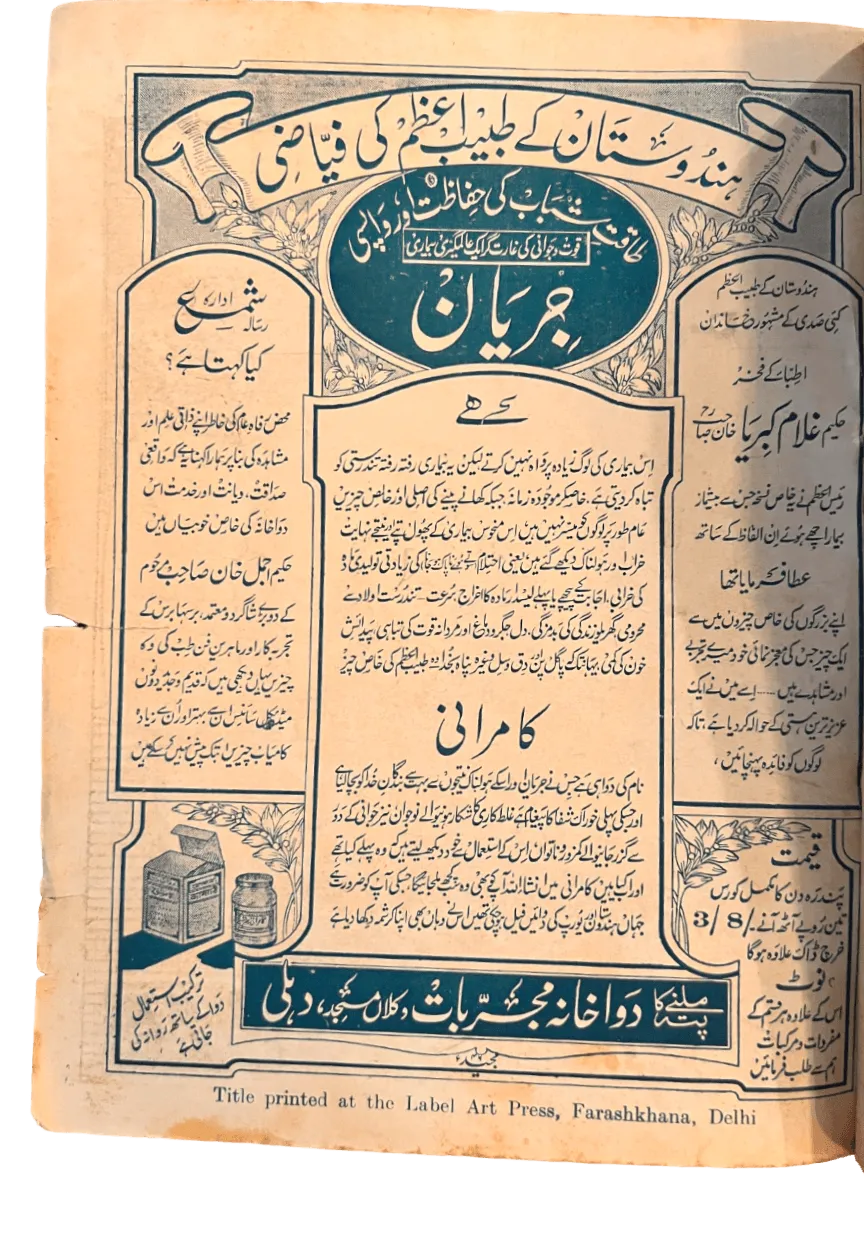 ہندوستان کے طبیب اعظم کی فیاضی
طاقتِ شباب کی حفاظت اور واپسی
قوت و جوانی کی غارت گر ایک عالمگیری بیماری
جریان
ہندوستان کے طبیب اعظم
کئی صدی کے مشہور خاندان
اطبّاء کے فخر
حکیم غلام کبریا خان صاحب رح
رئیس اعظم نے یہ خاص نسخہ جس سے بیشمار
بیمار اچھے ہوئے ان الفاظ کے ساتھ
عطا فرمایا تھا
اپنے بزرگوں کی خاص چیزوں میں سے
ایک چیز جس کی معجز نمائی خود میرے تجربے
اور مشاہدے ہیں ..... اسے میں نے ایک
عزیز ترین ہستی کے حوالہ کردیا ہے، تاکہ
لوگوں کو فائدہ پہنچائیں،
ہے
اِس بیماری کی لوگ زیادہ پرواہ نہیں کرتے لیکن یہ بیماری رفتہ رفتہ تندرستی کو
تباہ کر دیتی ہے۔ خاصکر موجودہ زمانہ جبکہ کھانے پینے کی اصلی اور خاص چیزیں
عام طور پر لوگوں کو میسر نہیں ہیں اس منحوس بیماری کے پھول پتے اور نتیجے نہایت
خراب اور ہولناک دیکھے گئے ہیں یعنی احتلام کی زیادتی تولیدی مادہ
کی خرابی، اجابت کے پیچھے یا پہلے لیسدار مادہ کا اخراج، سُرعت - تندرست اولاد سے
محرومی گھریلو زندگی کی بدمزگی، دل جگر و دماغ اور مردانہ قوت کی تباہی، پیدائش
خون کی کمی یہانتک پاگل پن اور دق وسل وغیرہ پناہ بخدا وہ طبیب اعظم کی خاص چیز
کامرانی
نام کی دوا ہی ہے جس نے جریان اور اسکے ہولناک نتیجوں سے بہت سے بندگانِ خدا کو بچا لیا ہے
اور جسکی پہلی خوراک شفا کا پیغام ہے غلط کاری کا شکار ہونیوالے نوجوان نیز جوانی کے دَور
سے گزر جانیوالے کمزور و ناتواں اِس کے استعمال سے خود دیکھ لیتے ہیں کہ وہ پہلے کیا تھے
اور اب کیا ہیں کامرانی میں انشاءاللہ آپ کو بھی وہ سب کچھ ملجائیگا جسکی آپ کو ضرورت ہے
جہاں ہندوستان اور یورپ کی دوائیں فیل ہو چکی تھیں اس نے وہاں بھی اپنا کرشمہ دکھا دیا ہے
ادارہ
رسالہ شمع
کیا کہتا ہے؟
محض رفاہ عام کی خاطر اپنے ذاتی علم اور
مشاہدہ کی بنا پر ہمارا کہنا یہ ہے کہ واقعی
صداقت، دیانت اور خدمت اس
دواخانہ کی خاص خوبیاں ہیں
حکیم اجمل خان صاحب مرحوم
کے دوسرے شاگرد و معتمد، برسہا برس کے
تجربہ کار اور ماہرین فن طب کی وہ
چیزیں یہاں دیکھی ہیں کہ قدیم و جدید دونوں
میڈیکل سائنس ان سے بہتر اور اُن سے زیادہ
کامیاب چیزیں ابتک پیش نہیں کر سکے ہیں
قیمت
پندرہ دن کا مکمل کورس
تین روپے آٹھ آنے -/3/8
خرچ ڈاک علاوہ ہوگا
نوٹ
اس کے علاوہ ہر قسم کے
مفردات و مرکبات
ہم سے طلب فرمائیں
ترکیب استعمال
دوا کے ساتھ روانہ کی
جاتی ہے
ملنے کا پتہ دواخانہ مجربات وکلاں مسجد، دہلی
مجید
Title printed at the Label Art Press, Farashkhana, Delhi